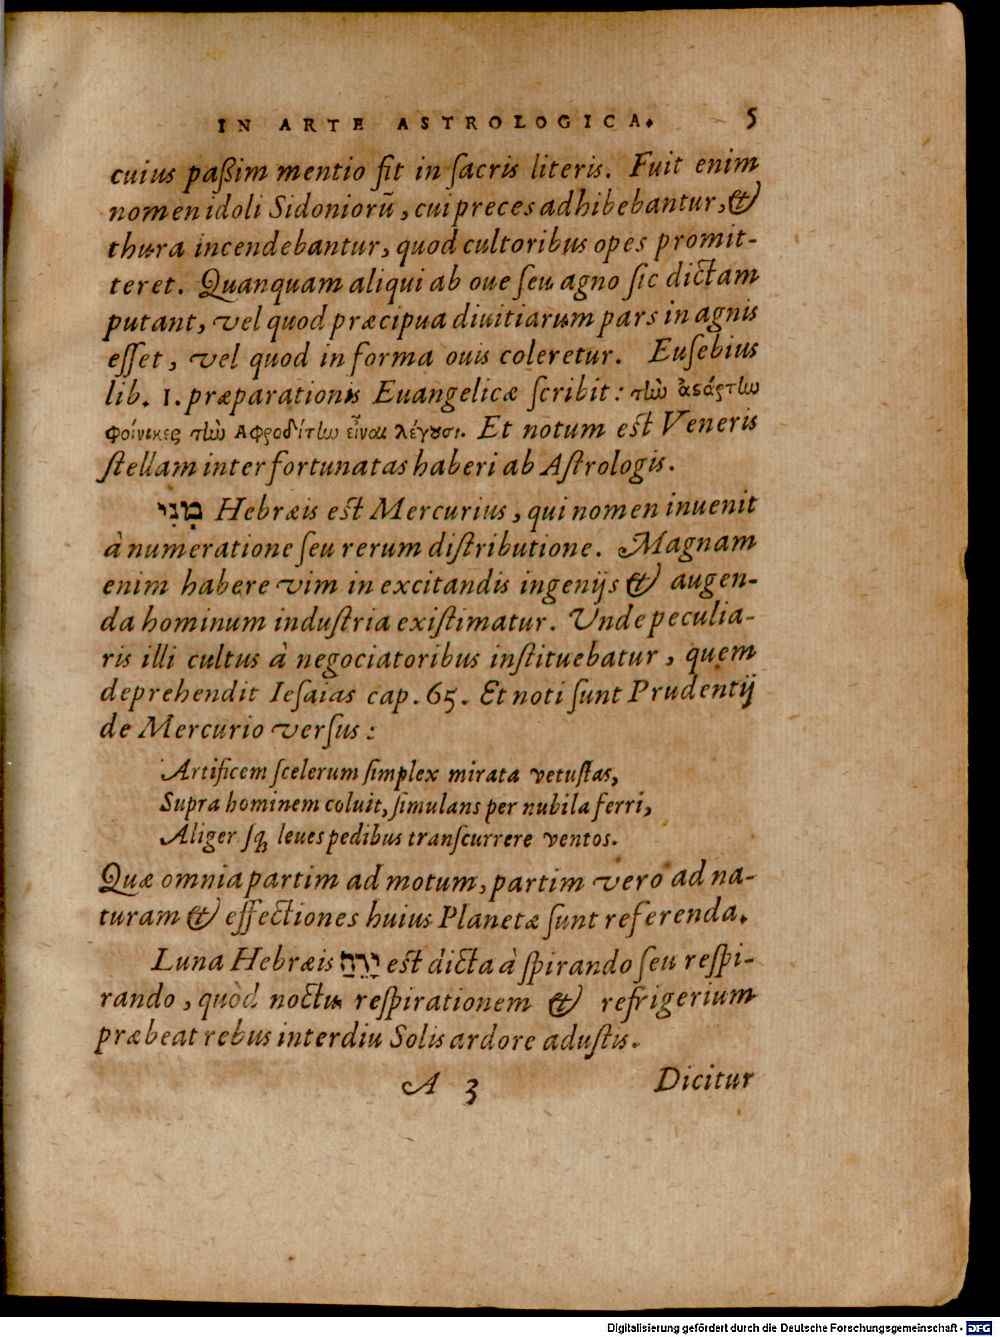 IN ARTE ASTROLOGICA. 5
cuius paßim mentio fit in ſacris literis. Fuit enim
nomen idoli Sidoniorũ, cui preces adhibebantur, &
thura incendebantur, quod cultoribus opes promit-
teret. Quanquam aliqui ab oue ſeu agno ſic dictam
putant, vel quod præcipua diuitiarum pars in agnis
eſſet, vel quod in forma ouis coleretur. Euſebius
lib. 1. præparationis Euangelicæ ſcribit: τὼ ἀϛάρτω
φοίνικες τὼ Αφροδίτω εἶναι λέγουσι. Et notum eſt Veneris
ſtellam inter fortunatas haberi ab Aſtrologis.
מְנִי Hebræis eſt Mercurius, qui nomen inuenit
à numeratione ſeu rerum diſtributione. Magnam
enim habere vim in excitandis ingenijs & augen-
da hominum induſtria exiſtimatur. Vnde peculia-
ris illi cultus à negociatoribus inſtituebatur, quem
deprehendit Ieſaias cap. 65. Et noti ſunt Prudentij
de Mercurio verſus:
Artificem ſcelerum ſimplex mirata vetuſtas,
Supra hominem coluit, ſimulans per nubila ferri,
Aliger ſq́; leues pedibus tranſcurrere ventos.
Quæ omnia partim ad motum, partim vero ad na-
turam & effectiones huius Planetæ ſunt referenda.
Luna Hebræis יָרֵחַ eſt dicta à ſpirando ſeu reſpi-
rando, quòd noctu reſpirationem & refrigerium
præbeat rebus interdiu Solis ardore aduſtis.
A 3 Dicitur
Digitalisierung gefördert durch die Deutsche Forschungsgemeinschaft - DFG